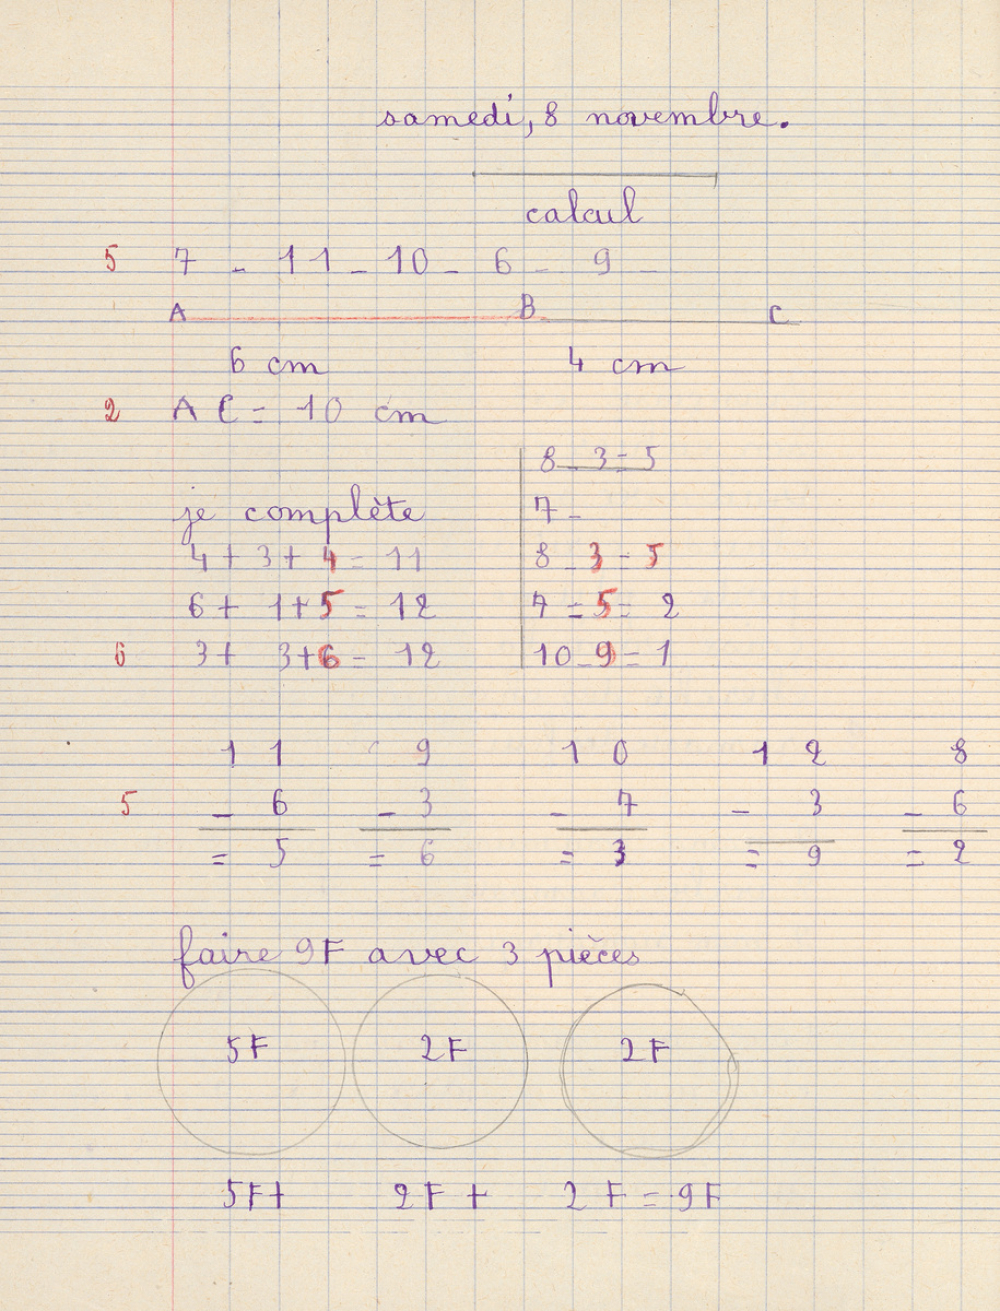 samedi, 8 novembre.
calcul
5 7 - 11 - 10 - 6 - 9 -
A B C
6 cm 4 cm
2 AC = 10 cm
je complète
4 + 3 + 4 = 11
6 + 1 + 5 = 12
6 3 + 3 + 6 = 12
8 - 3 = 5
7 -
8 - 3 = 5
7 = 5 = 2
10 - 9 = 1
11 9 10 12 8
5 - 6 - 3 - 7 - 3 - 6
= 5 = 6 = 3 = 9 = 2
faire 9F avec 3 pièces
5F 2F 2F
5F + 2F + 2F = 9F